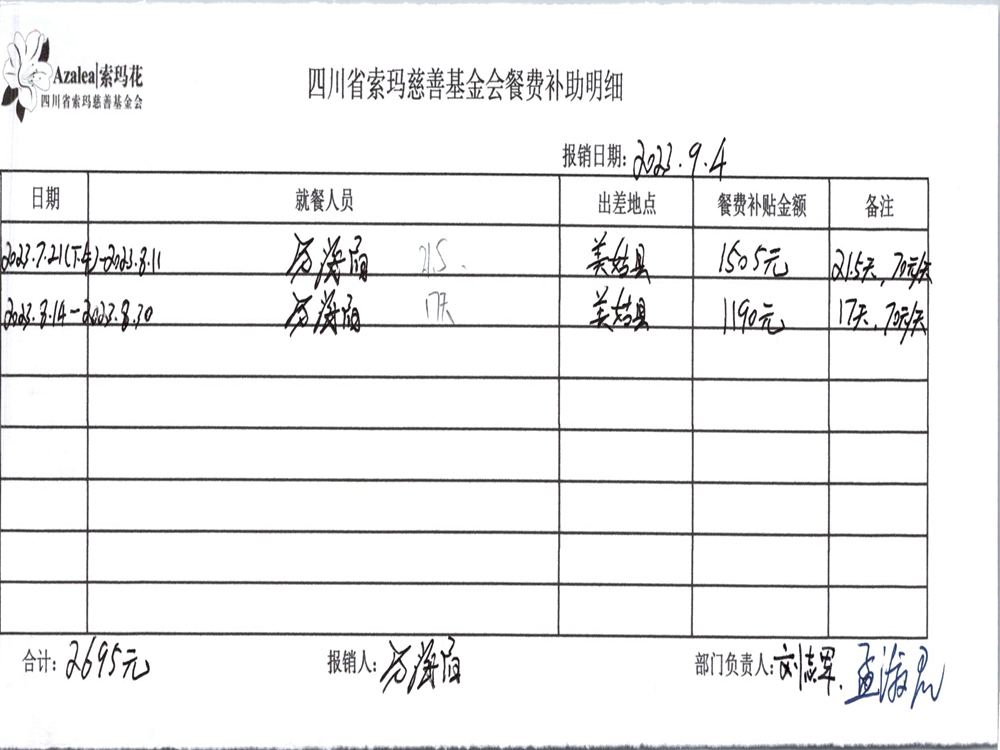 Azalea|索玛花
四川省索玛慈善基金会
四川省索玛慈善基金会餐费补助明细
报销日期：2023.9.4
日期 就餐人员 出差地点 餐费补贴金额 备注
2023.7.21(下午)-2023.8.11 21.5 美姑县 1505元 21.5天，70元/天
2023.8.14-2023.8.30 17天 美姑县 1190元 17天，70元/天
合计：2695元 报销人： 部门负责人：刘志军.